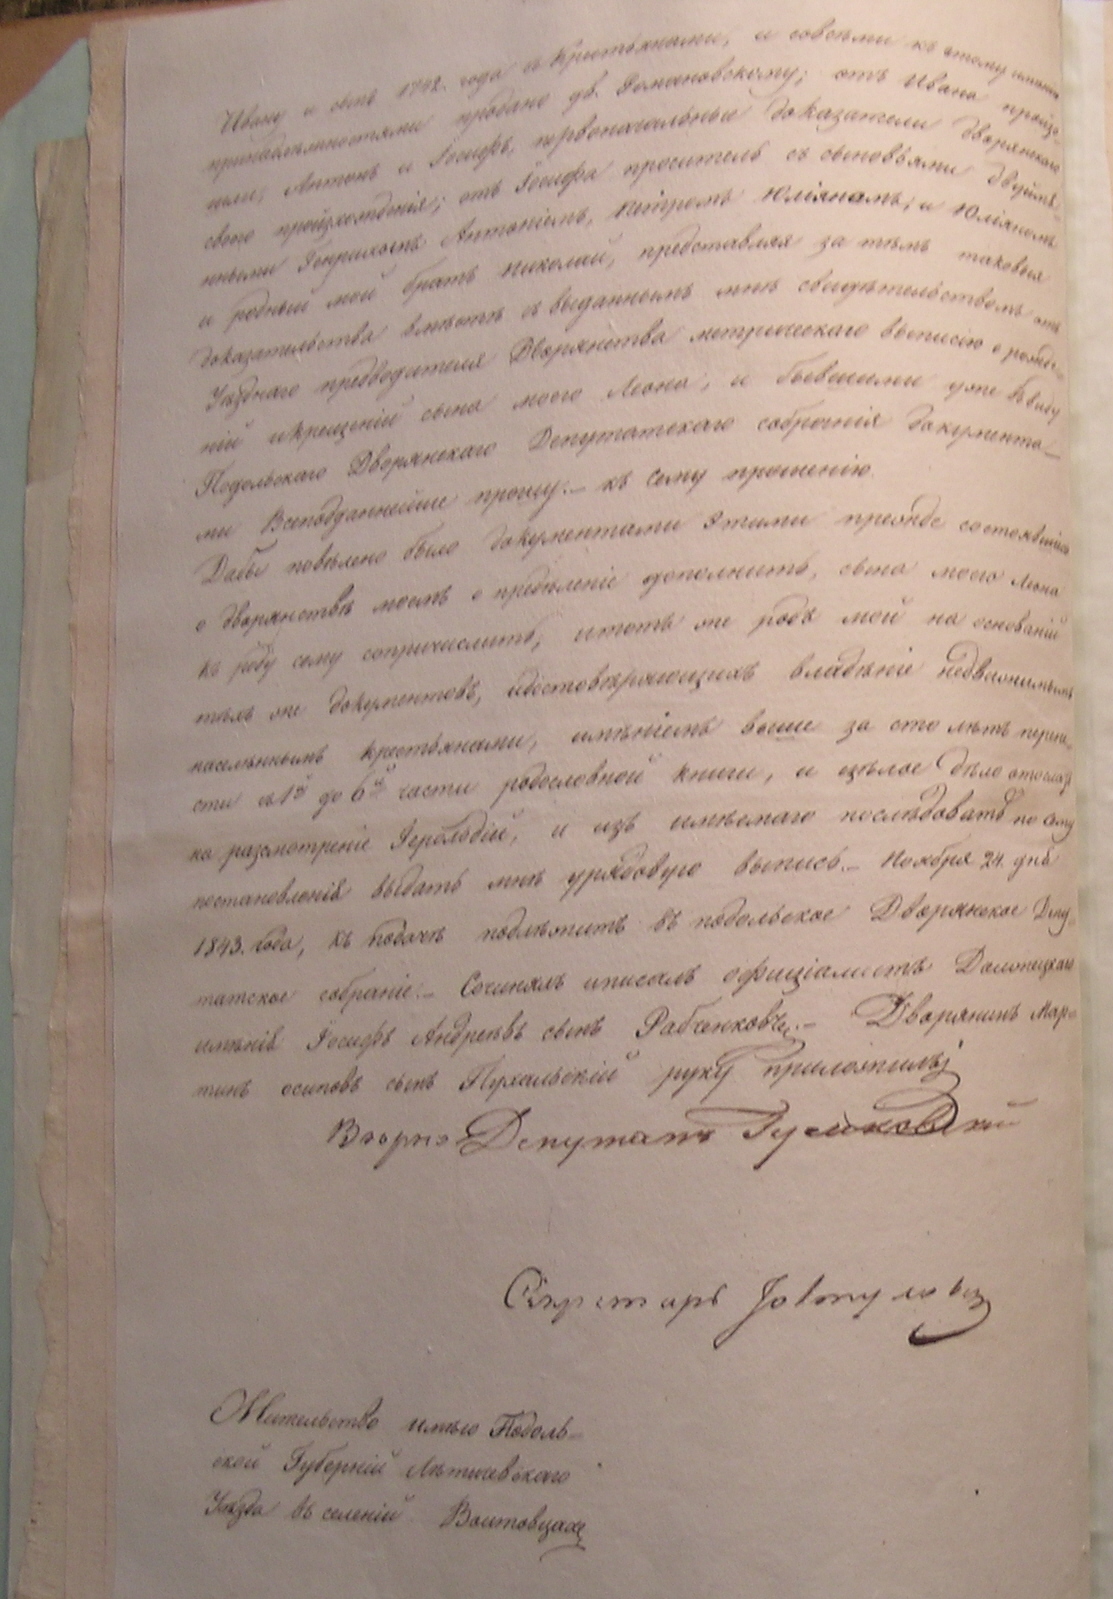 Ивану и сынъ 1792. года съ Крестьянами, и совсѣми къ этому имѣнію
принадлѣжностями продано дв. Романовскому; отъ Ивана произо-
шли, Антонъ и Іосифъ, первоначальные доказатели дворянскаго
своего происхожденія; отъ Іосифа проситель съ сыновьями двуймя-
нными Генрихомъ Антоніемъ, Петромъ Юліяномъ; и Юліяномъ
и родный мой братъ Николай, представляя за тѣмъ таковыя
доказательства вмѣстѣ съ выданнымъ мнѣ свидѣтельствомъ отъ
Уѣзднаго предводителя Дворянства метрическаго выписью о рожде-
ній икрещеній сына моего Леона; и бывшими уже Ввиду
Подольскаго Дворянскаго Депутатскаго собранія документа-
ми Всеподданнейше прошу:– къ сему прошенію.
Дабы повѣлено было документами этими прежде состоявшіяся
о дворянствѣ моемъ опредѣленіе дополнить, сына моего Леона
къ роду сему сопричислить, итотъ же родъ мой на основаніи
тѣхъ же документовъ, удостовѣряющихъ владѣніе недвижимымъ
населѣннымъ крестьянами, имѣніемъ выше за сто лѣтъ перене-
сти съ 1й до 6й части родословной книги, и цѣлое дѣло отослать
на разсмотреніе Герольдіи, и изъ имѣемаго послѣдовать по сему
постановленія выдать мнѣ урядовую выпись.– Ноября 24. дня
1843. года, къ подачѣ подлѣжитъ въ подольское Дворянское Депу-
татское собраніе.– Сочинялъ иписалъ официалистъ
имѣнія Іосифъ Андреевъ сынъ Рабченковъ.– Дворянинъ Мар-
тинъ осиповъ сынъ Пухальскій руку приложилъ
Вѣрно Депутатъ
Секретарь
Жительство имѣю Подоль-
ской Губерніи Лѣтичевскаго
Уѣзда въ селеніи Воитовцахъ